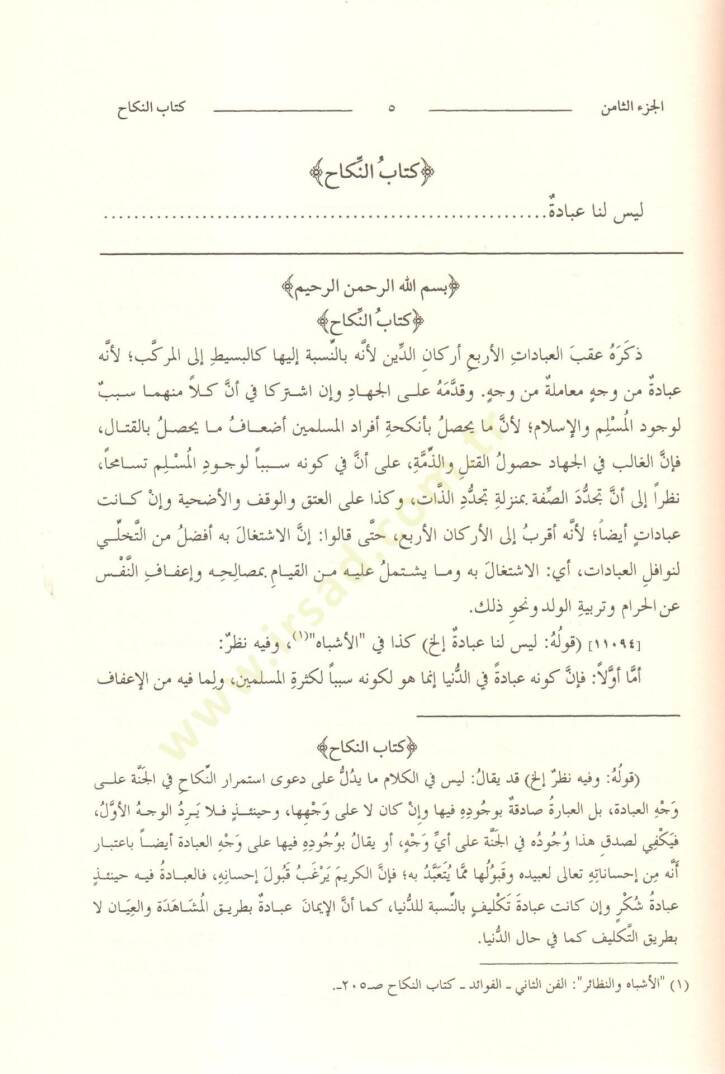 الجزء الثامن ــــــــــــــ ٥ ــــــــــــــ كتاب النكاح
﴿كتابُ النِّكاح﴾
ليس لنا عبادةٌ............................................................
﴿بسم الله الرحمن الرحيم﴾
﴿كتابُ النِّكاح﴾
ذكَرَهُ عقبَ العباداتِ الأربعِ أركانِ الدِّين لأنه بالنِّسبة إليها كالبسيط إلى المركَّب؛ لأنَّه
عبادةٌ من وجهٍ معاملةٌ من وجهٍ. وقدَّمَهُ على الجهادِ وإن اشتركا في أنَّ كلاًّ منهما سببٌ
لوجود المُسْلِم والإسلام؛ لأنَّ ما يحصلُ بأنكحةِ أفراد المسلمين أضعافُ ما يحصلُ بالقتال،
فإنَّ الغالب في الجهاد حصولُ القتلِ والذِّمَّةِ، على أنَّ في كونه سبباً لوجودِ المُسْلِم تسامحاً،
نظراً إلى أنَّ تجدُّدَ الصِّفة بمنزلةِ تجدُّدِ الذَّات، وكذا على العتق والوقف والأضحية وإنْ كانت
عباداتٍ أيضاً؛ لأنَّه أقربُ إلى الأركان الأربع، حتَّى قالوا: إنَّ الاشتغالَ به أفضلُ من التَّخلِّي
لنوافلِ العبادات، أي: الاشتغالَ به وما يشتملُ عليه من القيامِ بمصالحِه وإعفافِ النَّفْس
عن الحرام وتربيةِ الولد ونحوِ ذلك.
[١١٠٩٤] (قولُهُ: ليس لنا عبادةٌ إلخ) كذا في "الأشباه"(١)، وفيه نظرٌ:
أمَّا أوَّلاً: فإنَّ كونه عبادةً في الدُّنيا إنما هو لكونه سبباً لكثرةِ المسلمين، ولِما فيه من الإعفاف
www.irsad.com.tr
﴿كتاب النكاح﴾
(قولُهُ: وفيه نظرٌ إلخ) قد يقالُ: ليس في الكلام ما يدُلُّ على دعوى استمرار النِّكاح في الجَنَّة على
وَجْهِ العبادة، بل العبارةُ صادقةٌ بوجُودِهِ فيها وإنْ كان لا على وَجْهِها، وحينئذٍ فلا يَرِدُ الوجهُ الأوَّلُ،
فيَكْفِي لصدقِ هذا وُجُودُه في الجَنَّة على أيِّ وَجْهٍ، أو يقالُ بوُجُودِهِ فيها على وَجْهِ العبادة أيضاً باعتبار
أنَّه مِن إحساناتِهِ تعالى لعبيده وقَبُولُها ممَّا يُتَعَبَّدُ به؛ فإنَّ الكريمَ يَرْغَبُ قَبُولَ إحسانِهِ، فالعبادةُ فيه حينئذٍ
عبادةُ شُكْرٍ وإن كانت عبادةَ تَكْليفٍ بالنِّسبة للدُّنيا، كما أنَّ الإيمانَ عبادةٌ بطريق المُشاهَدَة والعِيَان لا
بطريق التَّكليف كما في حال الدُّنيا.
(١) "الأشباه والنظائر": الفن الثاني ـ الفوائد ـ كتاب النكاح صـ٢٠٥ـ.